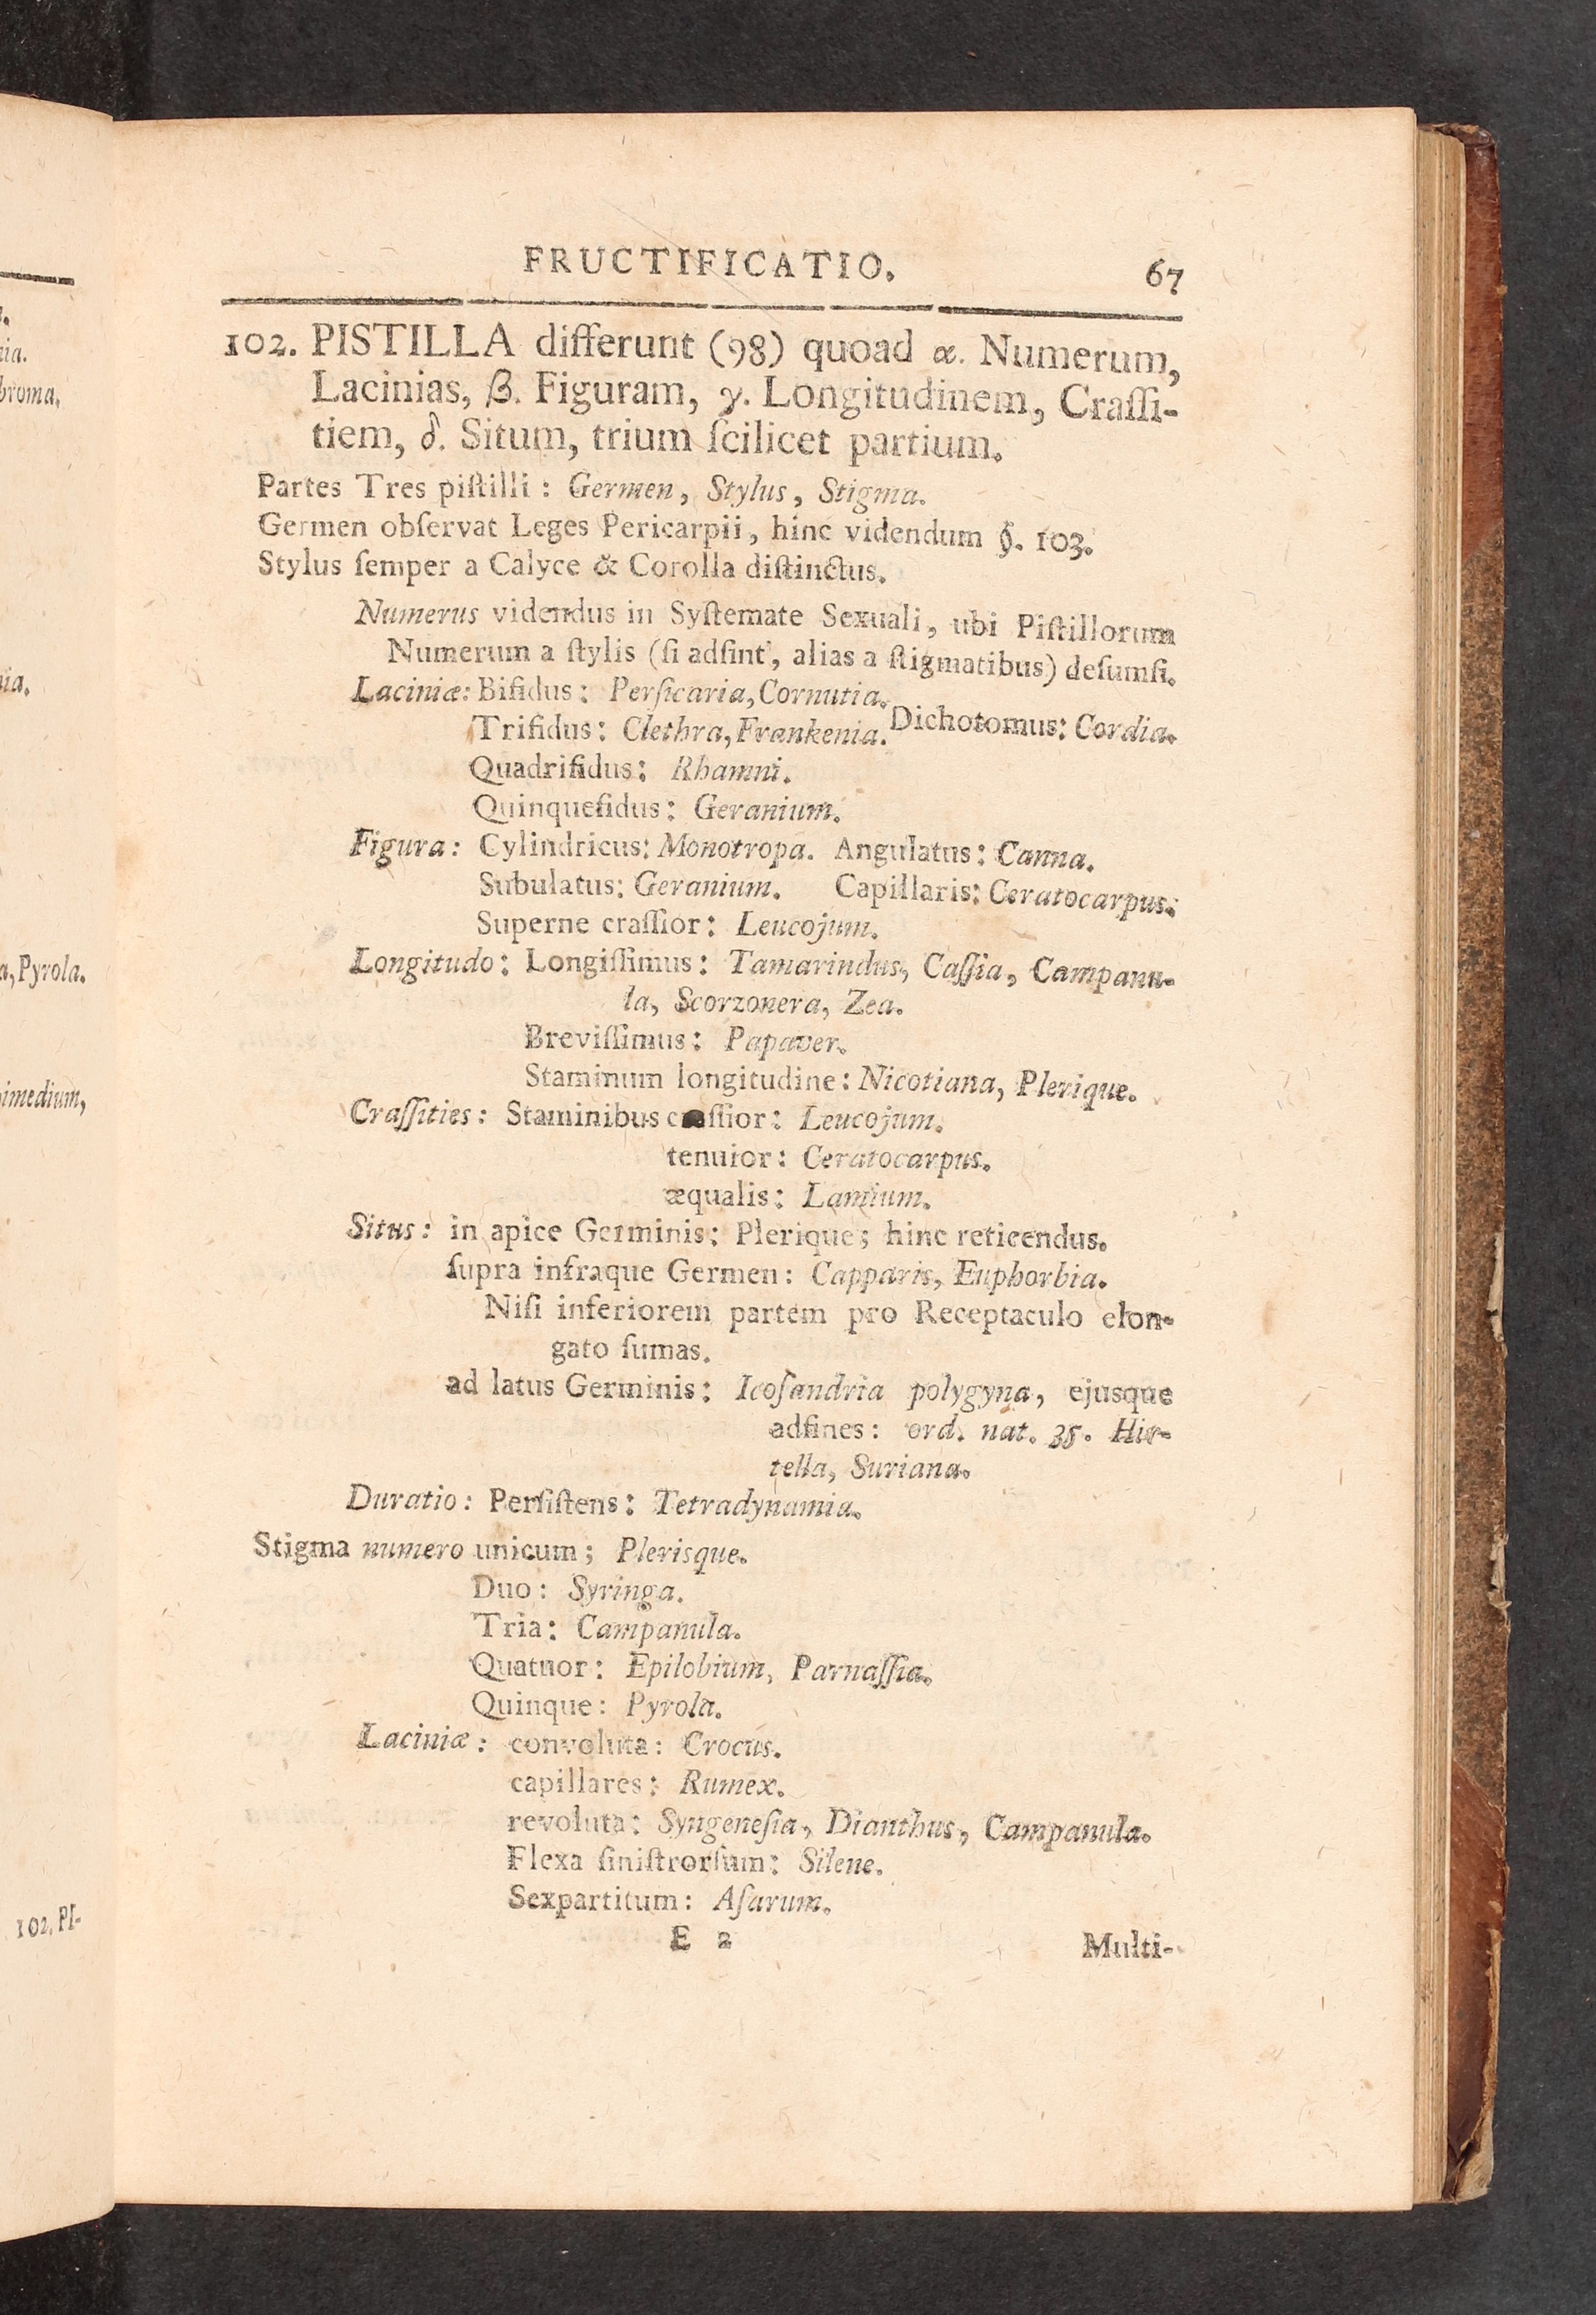 FRUCTIFICATIO. 67
102. PISTILLA differunt (98) quoad α. Numerum,
Lacinias, β. Figuram, γ. Longitudinem, Craſſi-
tiem, δ. Situm, trium ſcilicet partium.
Partes Tres piſtilli: Germen, Stylus, Stigma.
Germen obſervat Leges Pericarpii, hinc videndum §. 103.
Stylus ſemper a Calyce & Corolla diſtinctus.
Numerus videndus in Syſtemate Sexuali, ubi Piſtillorum
Numerum a ſtylis (ſi adſint, alias a ſtigmatibus) deſumſi.
Laciniæ: Bifidus: Perſicaria, Cornutia.
Trifidus: Clethra, Frankenia. Dichotomus: Cordia.
Quadrifidus: Rhamni.
Quinquefidus: Geranium.
Figura: Cylindricus: Monotropa. Angulatus: Canna.
Subulatus: Geranium. Capillaris: Ceratocarpus.
Superne craſſior: Leucojum.
Longitudo: Longiſſimus: Tamarindus, Caſſia, Campanu-
la, Scorzonera, Zea.
Breviſſimus: Papaver.
Staminum longitudine: Nicotiana, Plerique.
Craſſities: Staminibus craſſior: Leucojum.
tenuior: Ceratocarpus.
æqualis: Lamium.
Situs: in apice Germinis: Plerique; hinc reticendus.
ſupra infraque Germen: Capparis, Euphorbia.
Niſi inferiorem partem pro Receptaculo elon-
gato ſumas.
ad latus Germinis: Icoſandria polygyna, ejusque
adfines: ord. nat. 35. Hir-
tella, Suriana.
Duratio: Perſiſtens: Tetradynamia.
Stigma numero unicum; Plerisque.
Duo: Syringa.
Tria: Campanula.
Quatuor: Epilobium, Parnaſſia.
Quinque: Pyrola.
Laciniæ: convoluta: Crocus.
capillares: Rumex.
revoluta: Syngeneſia, Dianthus, Campanula.
Flexa ſiniſtrorſum: Silene.
Sexpartitum: Aſarum.
E 2 Multi-